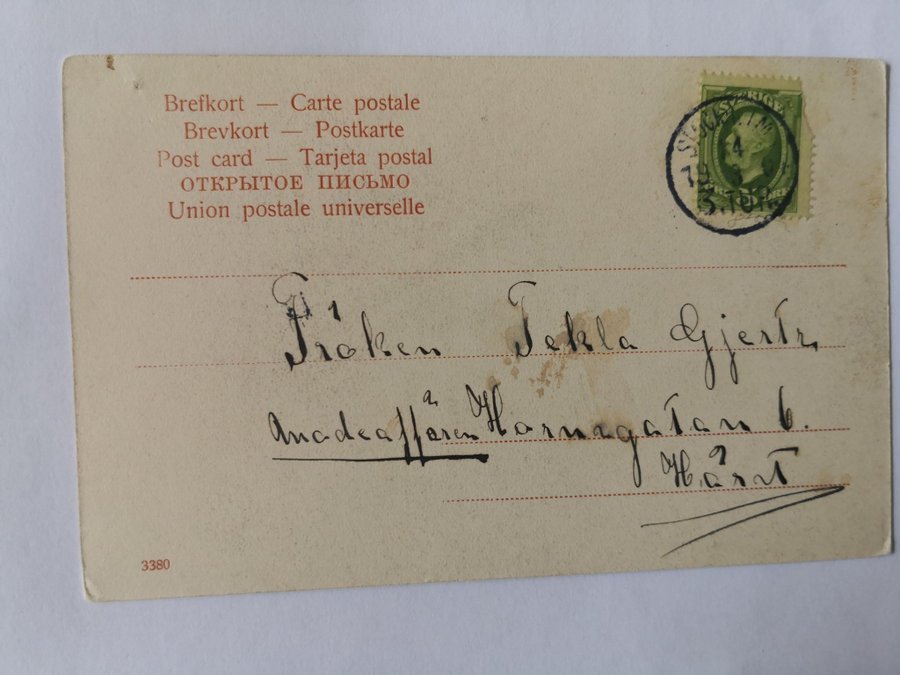 Brefkort — Carte postale
Brevkort — Postkarte
Post card — Tarjeta postal
ОТКРЫТОЕ ПИСЬМО
Union postale universelle
Fröken Tekla Gjertz
Modeaffären Hornsgatan 6.
Härst
3380